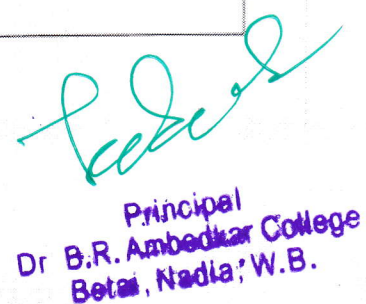 Principal
Dr B.R. Ambedkar College
Betai, Nadia, W.B.